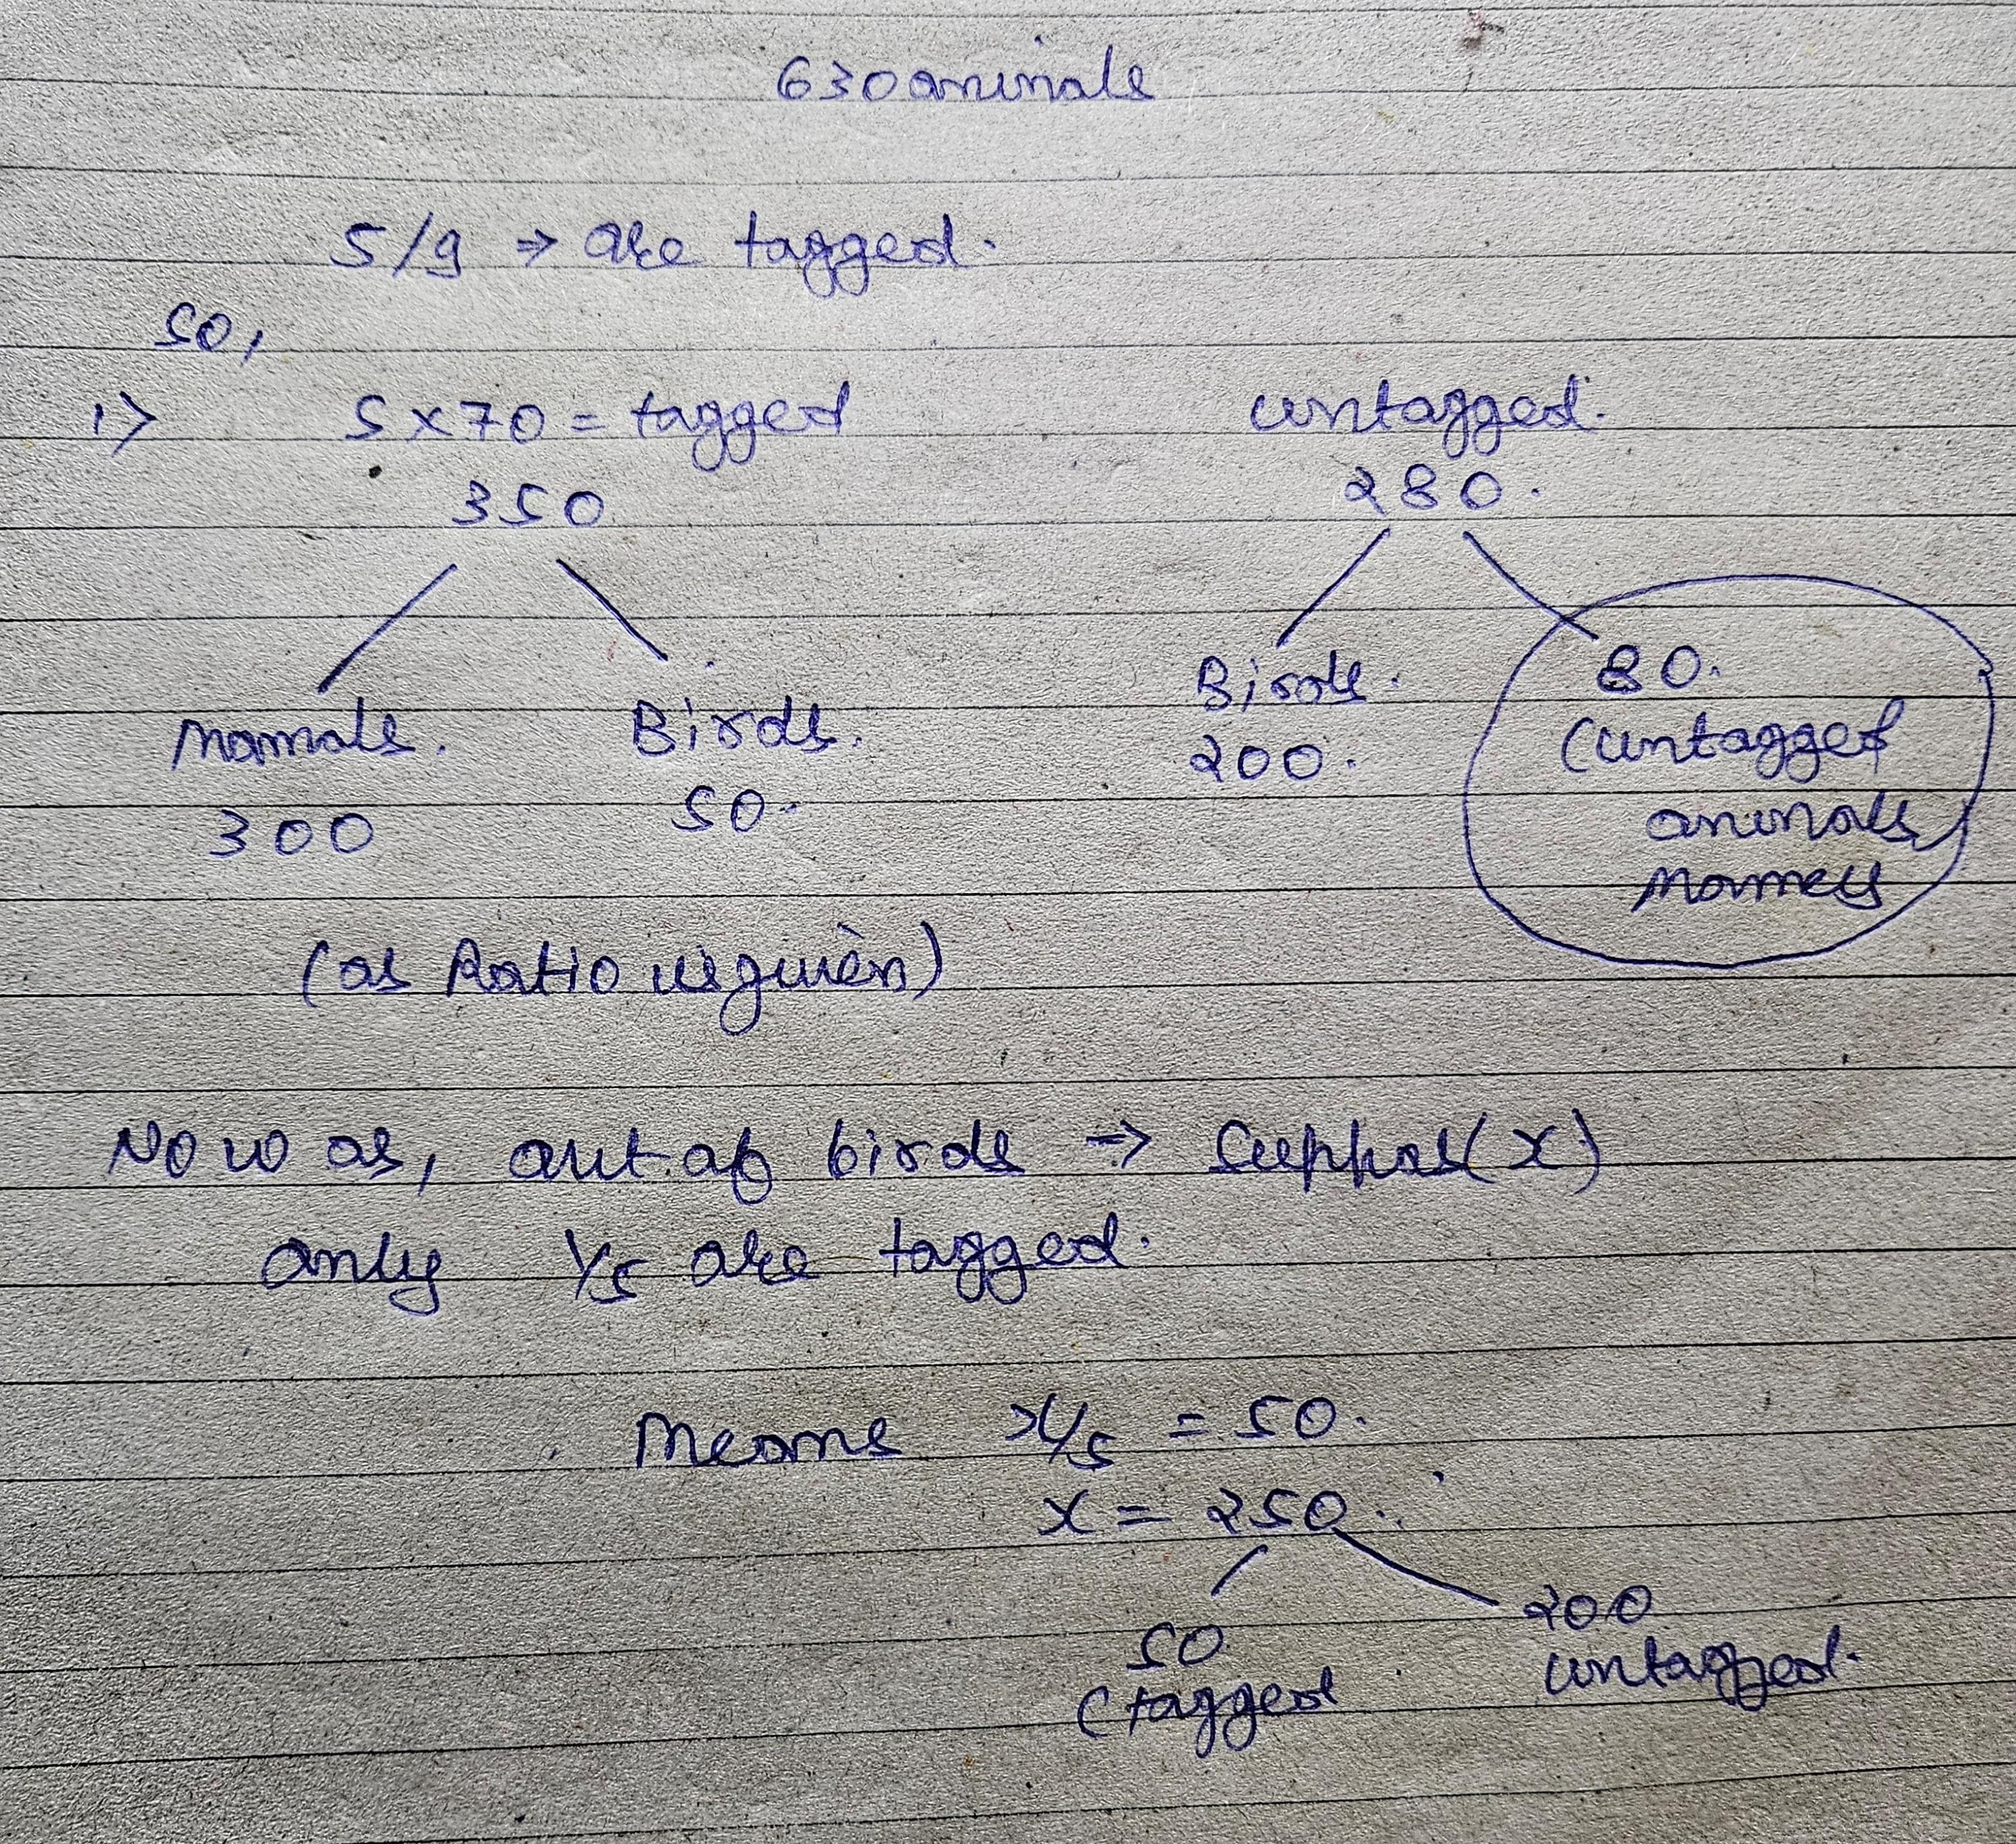 630 animals
5/9 ⇒ are tagged.
so,
1> 5 x 70 = tagged untagged.
350 280.
Mamals. Birds. Birds. 80.
300 50. 200. (untagged
animals
(as Ratio is given)
Now as, out of birds → Suppos(x)
only 1/5 are tagged.
Means x/5 = 50.
x = 250.
50 200
(tagged untagged.